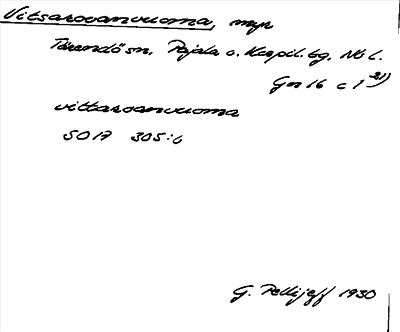 Vitsarovanvuoma, myr
Tärendö sn, Pajala o. Korpil. tg, Nb l.
Gen 16 c 1 31)
vittarovanvuoma
SOIA 305:6
G. Pellijeff 1930